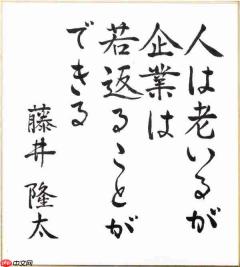 人は老いるが
企業は
若返ることが
できる
藤井隆太